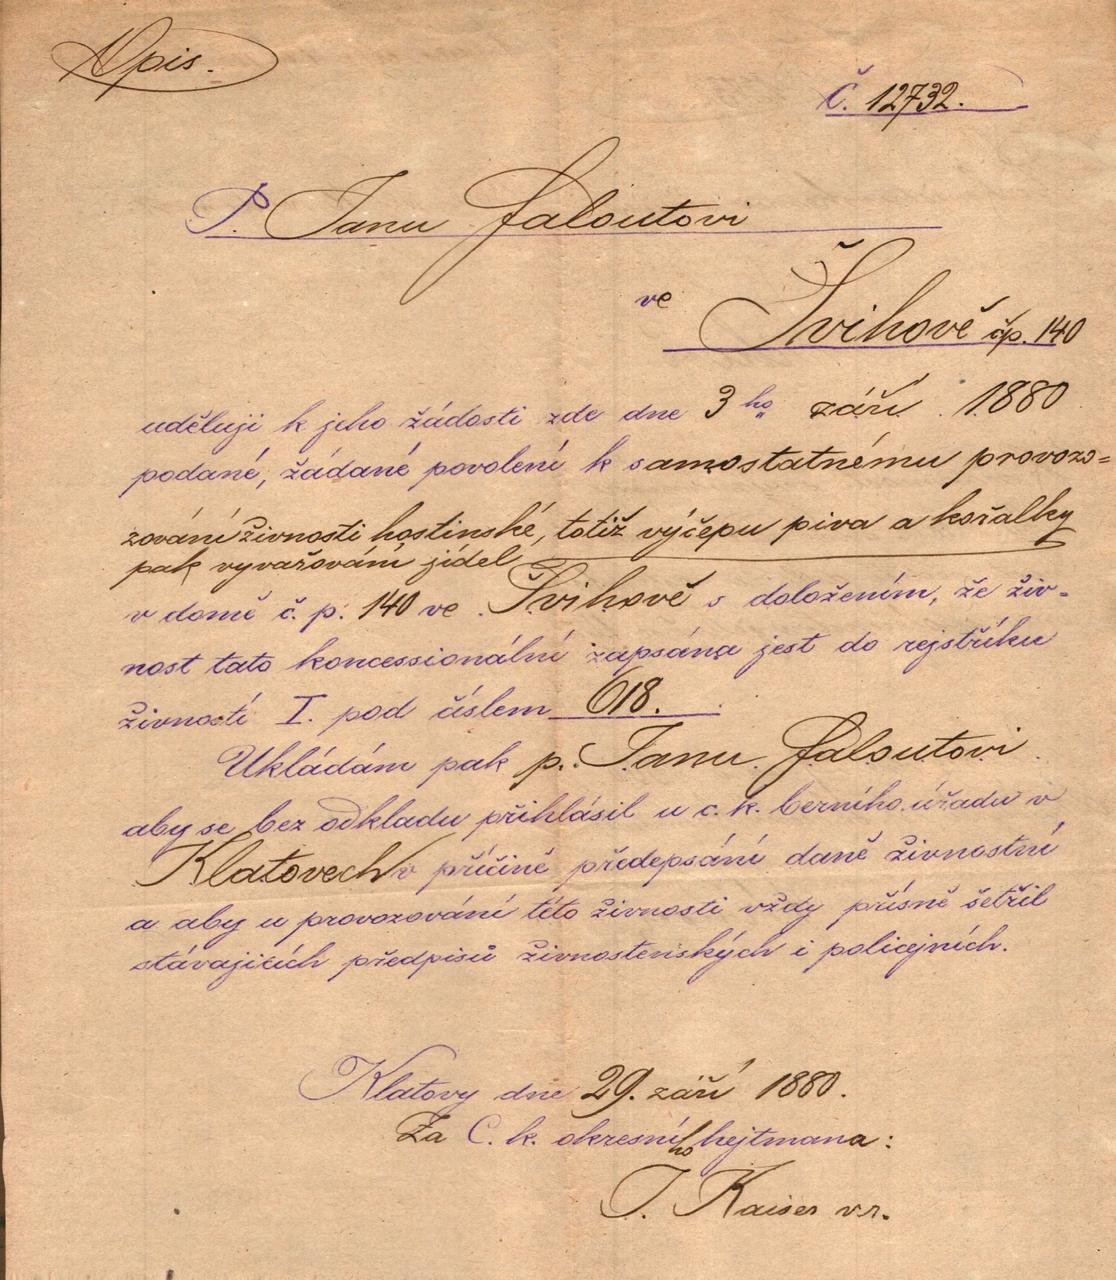 Opis.
Č. 12732.
P. Janu Jaloutovi
ve
Švihově čp. 140
uděluji k jeho žádosti zde dne 3ho září 1880
podané, žádané povolení k samostatnému provozo=
zování živnosti hostinské, totiž výčepu piva a kořalky
pak vyvařování jídel
v domě č. p. 140 ve Švihově s doložením, že živ-
nost tato koncessionální zapsána jest do rejstříku
živností I. pod číslem 618.
Ukládám pak p. Janu Jaloutovi
aby se bez odkladu přihlásil u c. k. berního úřadu v
Klatovech v příčině předepsání daně živnostní
a aby u provozování této živnosti vždy přísně šetřil
stávajících předpisů živnostenských i policejních.
Klatovy dne 29. září 1880.
Za C. k. okresního hejtmana:
J. Kaiser v.r.